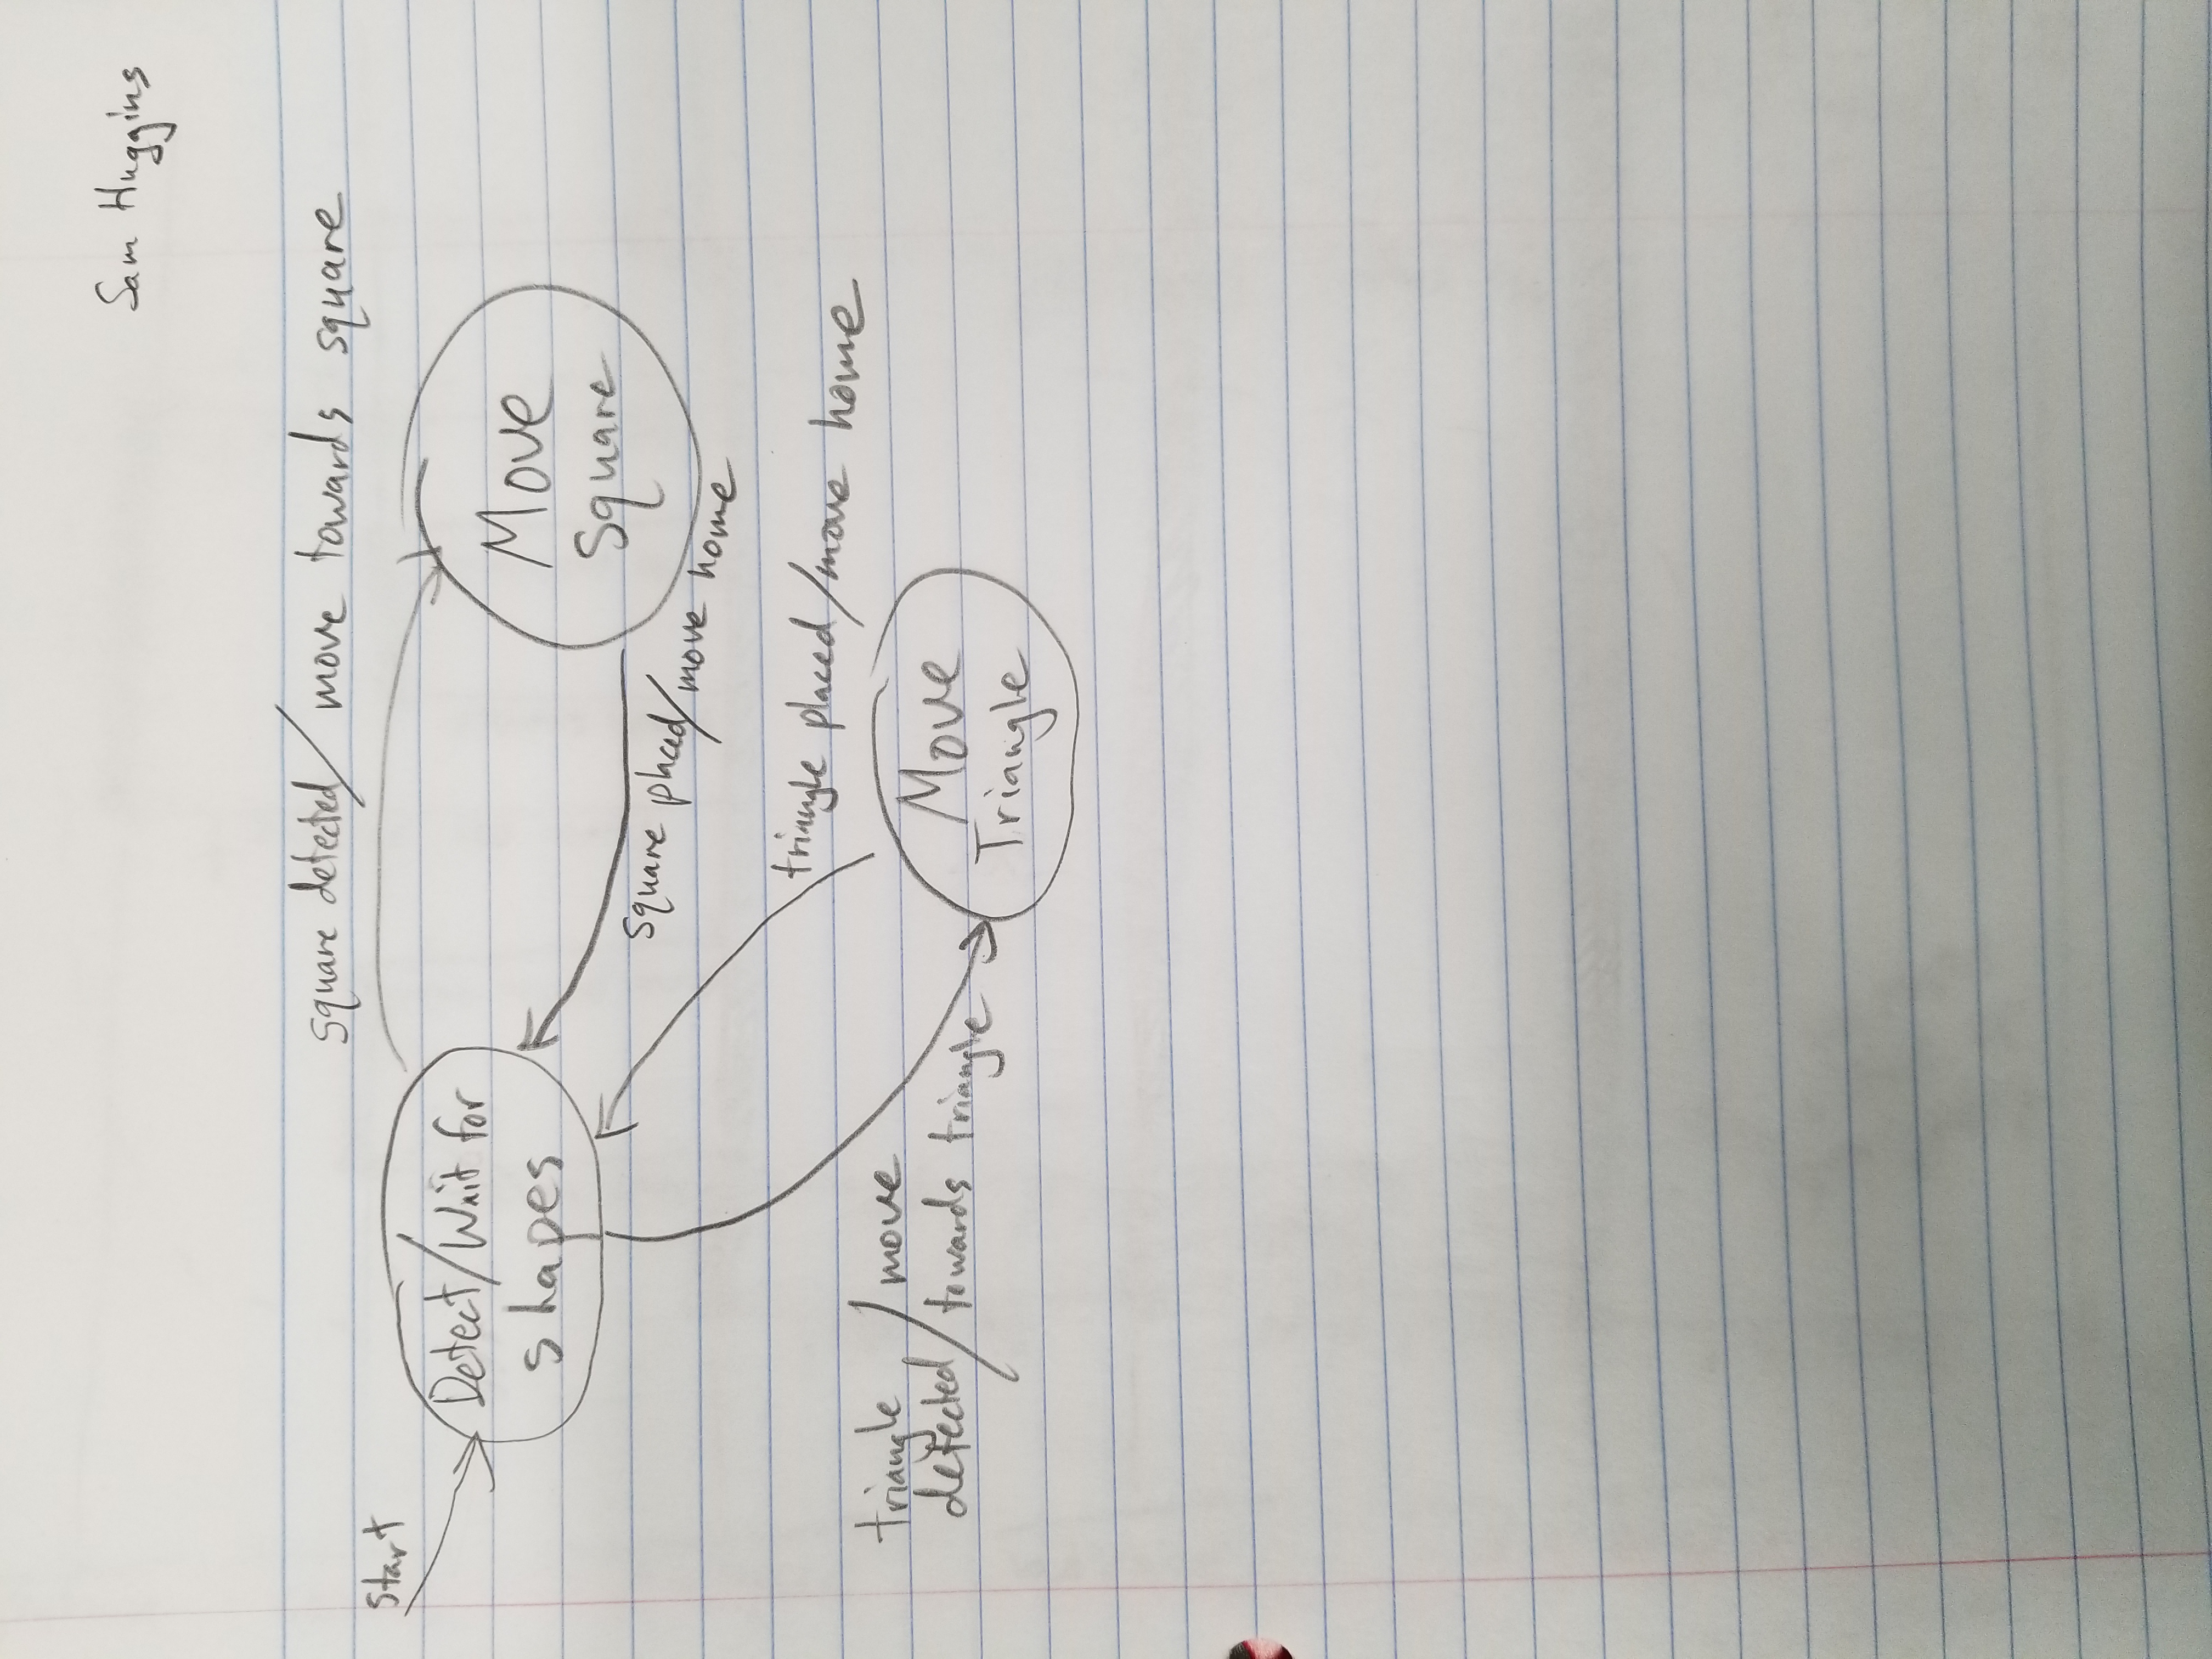 Sam Huggins
square detected/ move towards square
start
Detect/Wait for
shapes
Move
Square
square placed/move home
triangle placed/move home
triangle / move
detected/ towards triangle
Move
Triangle